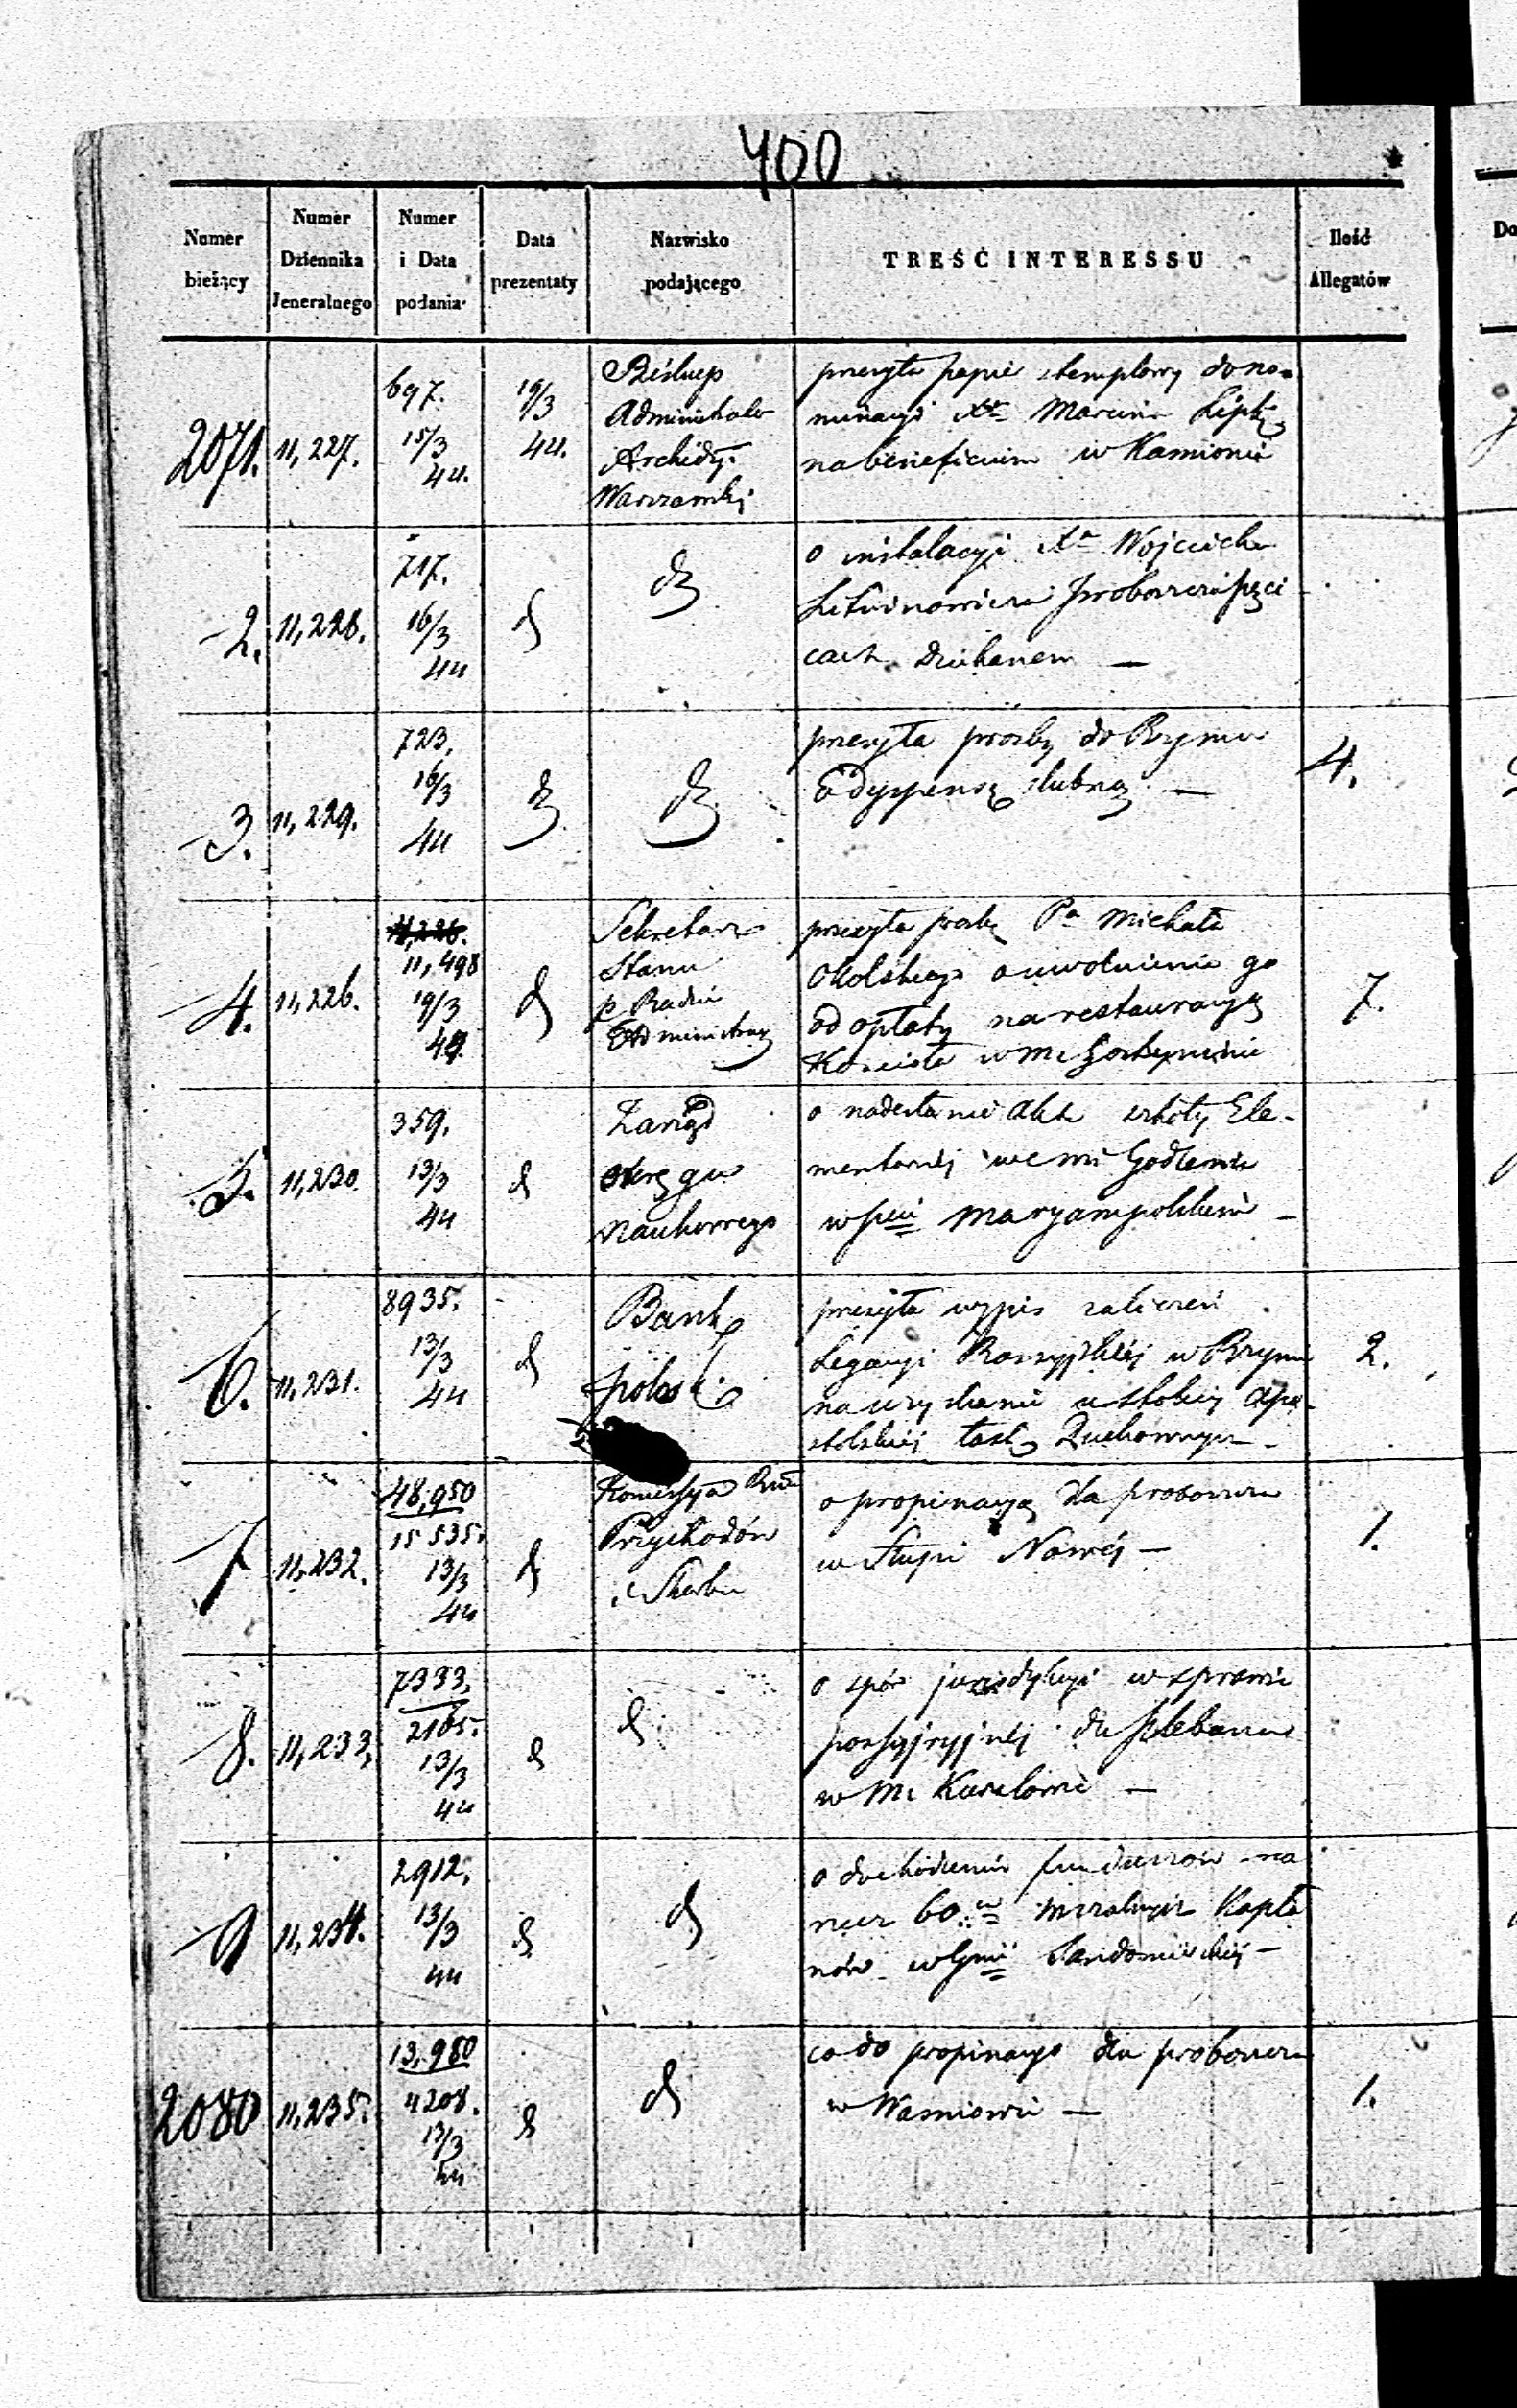 400
Numer bieżący
Numer Dziennika Jeneralnego
Numer i Data podania
Data prezentaty
Nazwisko podającego
TREŚĆ INTERESSU
Ilość Allegatów
Do
2071.
11,227.
697.
15/3
44.
19/3
44.
Biskup
Administrator
Archidy.
Warszawski
przesyła papier stemplowy do no-
minacyi Xa Marcina
na beneficium w Kamionie
2.
11,228.
717.
16/3
44
o instalacyi Xa Wojciecha
Litwinowicza Proboszcza
cach Dziekanem —
3.
11,229.
723,
16/3
44
przesyła prośbę do Rzymu
o dyspensę ślubną —
4.
4.
11,226.
11,498
19/3
44
Sekretarz
Stanu
p Radzie
Administracy
przesyła prośbę Pa Michała
Okolskiego o uwolnienie go
od opłaty na restauracyę
Kościoła w Mie Gostyninie
7.
5.
11,230.
359.
13/3
44
Zarząd
Okręgu
Naukowego
o nadesłanie akt szkoły Ele-
mentarnéj we wsi Godlewie
w pcie Maryampolskim —
6.
11,231.
8935.
13/3
44
Bank
polski
przesyła wypis zaliczeń
Legacyi Rossyjskiéj w Rzymie
na uzyskanie u stolicy Apo-
stolskiéj łask Duchownych —
2.
7
11,232.
48,950
15 535.
13/3
44
Komissya Rzą
Przychodów
i Skarbu
o propinacyą dla proboszcza
w Słupi Nowéj —
1.
8.
11,233,
7333,
2165.
13/3
44
o spór jurisdykcyi w sprawie
possessyjnéj dla plebana
w Mie Kurzelowie —
9
11,234.
2912.
13/3
44
o dochodzeniu funduszów na
rzecz 60 Kapła
nów w Gnii Sandomirskiéj —
2080
11,235.
13,980
4208.
13/3
44
co do propinacyi dla proboszcza
w Waśniowie —
1.